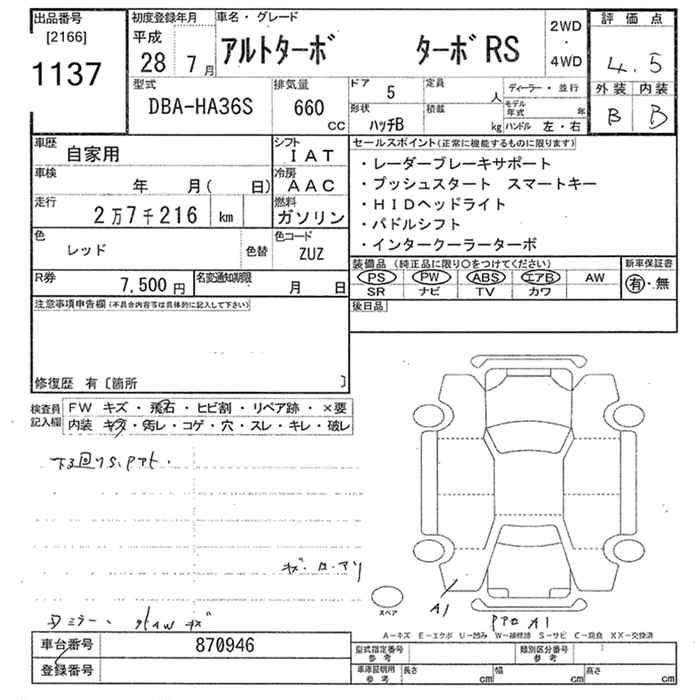 出品番号
[2166]
1137
初度登録年月
平成
28 7月
車名・グレード
アルトターボ ターボRS
2WD
・
4WD
評価点
4.5
外装 内装
B B
型式
DBA-HA36S
排気量
660
CC
ドア
5
定員
人
形状
ハッチB
積載
kg
ディーラー・並行
モデル年式 年
ハンドル 左・右
車歴
自家用
シフト
IAT
車検
年 月( 日)
冷房
AAC
走行
2万7千216 km
燃料
ガソリン
色
レッド
色替
色コード
ZUZ
R券
7,500円
名変通知期限
月 日
セールスポイント(正常に機能するものに限ります)
・レーダーブレーキサポート
・プッシュスタート スマートキー
・HIDヘッドライト
・パドルシフト
・インタークーラーターボ
装備品 (純正品に限り○をつけてください)
PS PW ABS エアB AW
SR ナビ TV カワ
新車保証書
有・無
後日品
注意事項申告欄(不具合内容等は具体的に記入して下さい)
修復歴 有〔箇所 〕
検査員
記入欄
FW キズ・飛石・ヒビ割・リペア跡・×要
内装 キズ・汚レ・コゲ・穴・スレ・キレ・破レ
スペア
A1
A1
A−キズ E−エクボ U−凹み W−補修跡 S−サビ C−腐食 XX−交換済
車台番号
870946
登録番号
型式指定番号
参考
類別区分番号
参考
車庫証明用
参考
長さ cm
幅 cm
高さ cm